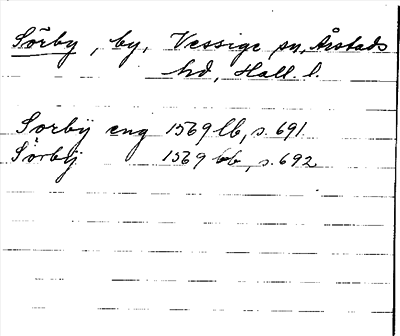 Sörby, by, Vessige sn, Årstads
hd, Hall. l.
Sorbÿ eng 1569 lb, s. 691
Sörbÿ 1569 lb, s. 692